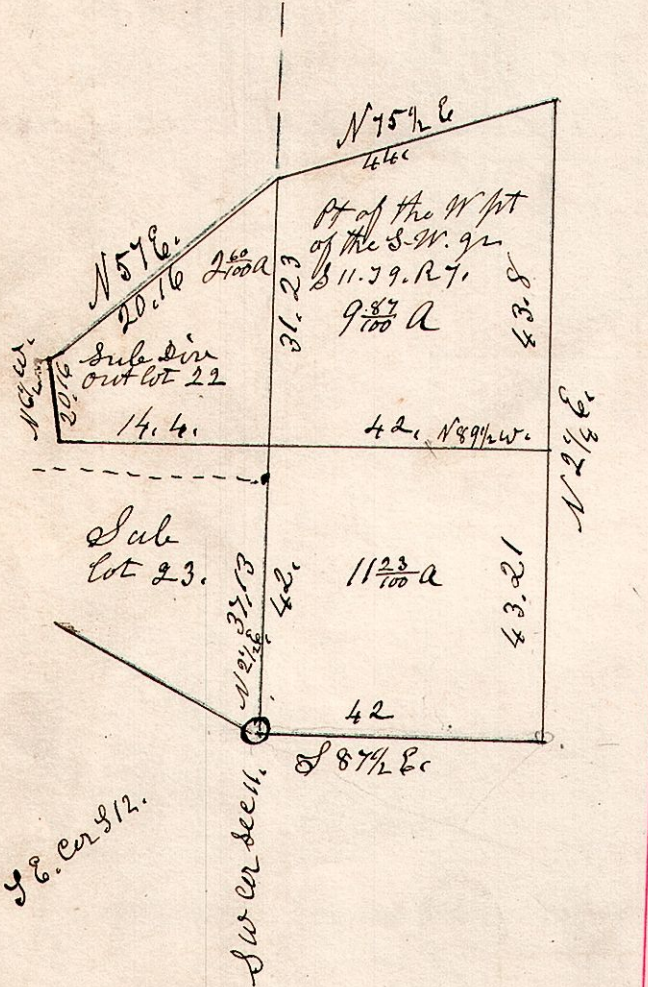 N 75 1/2 E
44.
N 57 E.
20.16
2 60/100 A
Pt of the W pt
of the S.W. qr
S 11. T 9. R 7.
9 87/100 A
31.23
43.8
N 6 W.
20.16
Sub Div
out lot 22
14.4.
42. N 89 1/2 W.
N 2 1/2 E.
Sub
lot 23.
N 2 1/2 E.
37.13
42.
11 23/100 A
43.21
42
S 87 1/2 E.
S.E. Cor S 12.
SW Cor Sec 11.